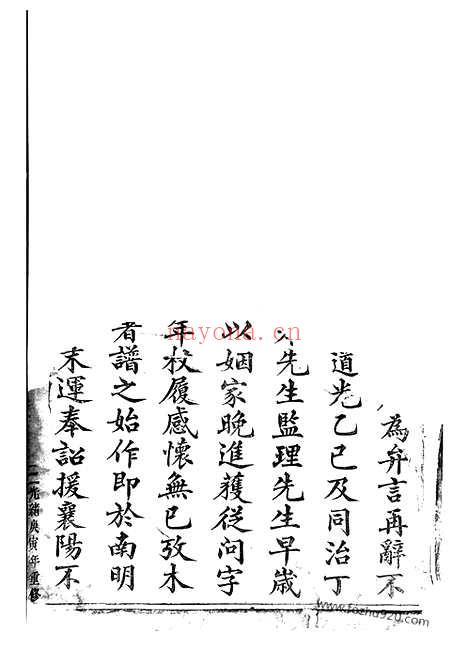 為弁言再辭不
道光乙巳及同治丁
先生監理先生早歲
以姻家晚進獲從問字
年杖履感懷無已攷木
者譜之始作即於南明
末運奉詔援襄陽不
光緒庚寅年重修
nayona.cn
www.fozhu920.com